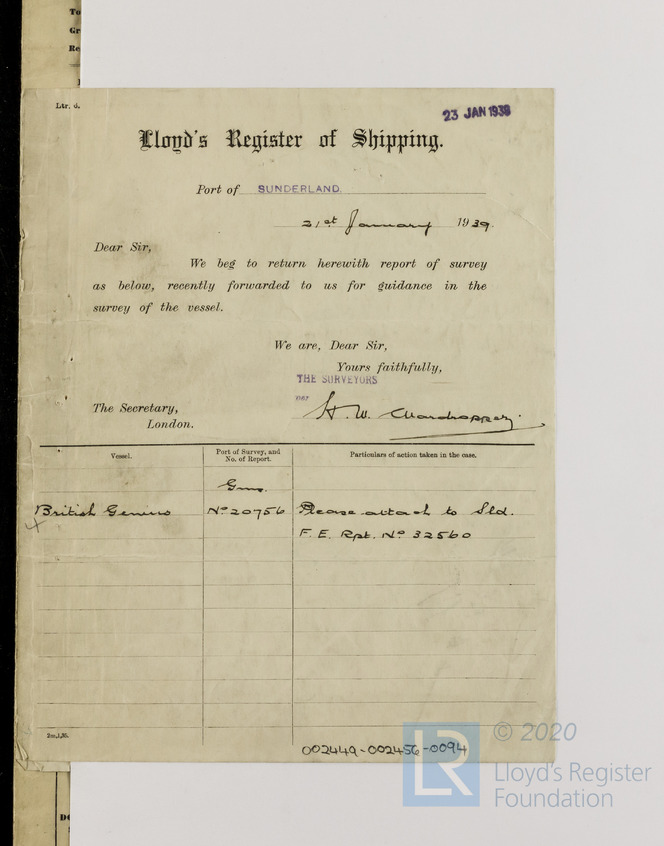 To
Gr
Re
Ltr. d.
23 JAN 1939
Lloyd's Register of Shipping.
Port of SUNDERLAND.
21st January 1939.
Dear Sir,
We beg to return herewith report of survey
as below, recently forwarded to us for guidance in the
survey of the vessel.
We are, Dear Sir,
Yours faithfully,
THE SURVEYORS
per H. W.
The Secretary,
London.
Vessel.
Port of Survey, and
No. of Report.
Particulars of action taken in the case.
Gms.
British Genius No 20756 Please attach to Sld.
F. E. Rpt. No 32560
002449-002456-0094
LR
© 2020
Lloyd's Register
Foundation